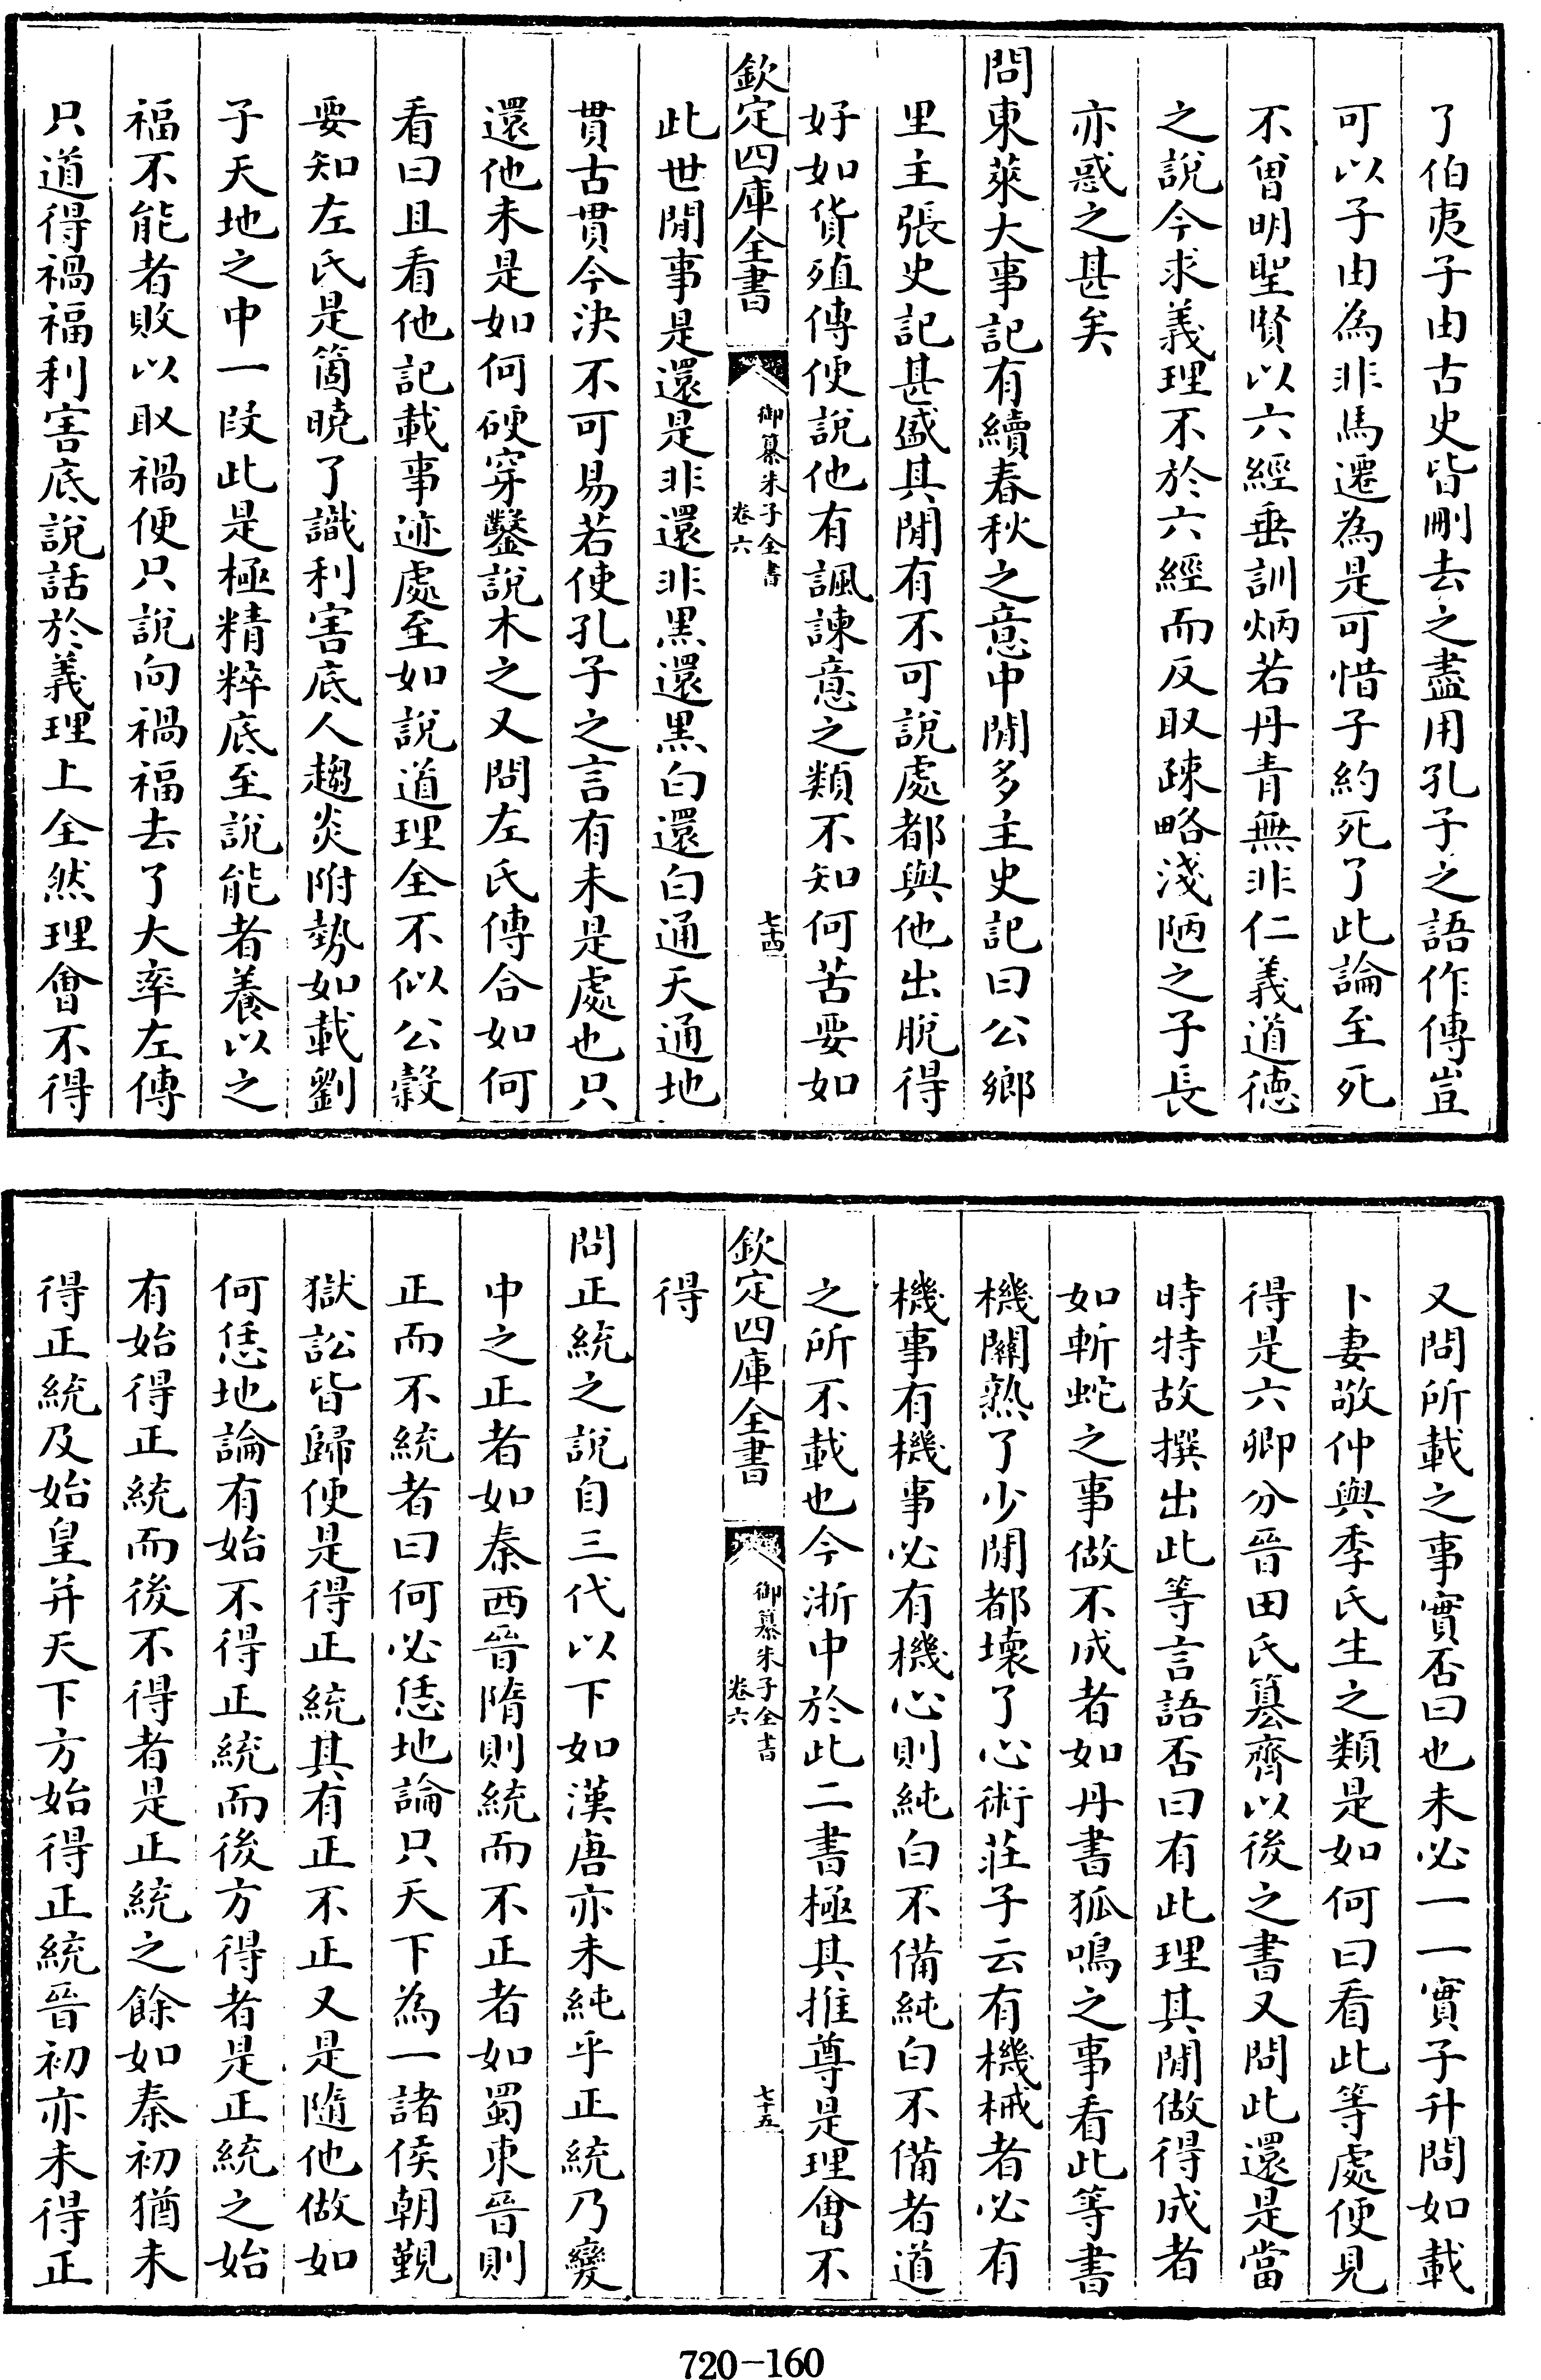 了伯夷子由古史皆刪去之盡用孔子之語作傳豈
可以子由為非馬遷為是可惜子約死了此論至死
不曾明聖賢以六經垂訓炳若丹青無非仁義道德
之說今求義理不於六經而反取疎略淺陋之子長
亦惑之甚矣
問東萊大事記有續春秋之意中閒多主史記曰公鄉
里主張史記甚盛其閒有不可說處都與他出脫得
好如貨殖傳便說他有諷諫意之類不知何苦要如
欽定四庫全書
御纂朱子全書
卷六
七十四
此世閒事是還是非還非黑還黑白還白通天通地
貫古貫今決不可易若使孔子之言有未是處也只
還他未是如何硬穿鑿說木之又問左氏傳合如何
看曰且看他記載事迹處至如說道理全不似公穀
要知左氏是箇曉了識利害底人趨炎附勢如載劉
子天地之中一段此是極精粹底至說能者養以之
福不能者敗以取禍便只說向禍福去了大率左傳
只道得禍福利害底說話於義理上全然理會不得
又問所載之事實否曰也未必一一實子升問如載
卜妻敬仲與季氏生之類是如何曰看此等處便見
得是六卿分晉田氏簒齊以後之書又問此還是當
時特故撰出此等言語否曰有此理其閒做得成者
如斬蛇之事做不成者如丹書狐鳴之事看此等書
機關熟了少閒都壞了心術莊子云有機械者必有
機事有機事必有機心則純白不備純白不備者道
之所不載也今浙中於此二書極其推尊是理會不
欽定四庫全書
御纂朱子全書
卷六
七十五
得
問正統之說自三代以下如漢唐亦未純乎正統乃變
中之正者如秦西晉隋則統而不正者如蜀東晉則
正而不統者曰何必恁地論只天下為一諸侯朝覲
獄訟皆歸便是得正統其有正不正又是隨他做如
何恁地論有始不得正統而後方得者是正統之始
有始得正統而後不得者是正統之餘如秦初猶未
得正統及始皇并天下方始得正統晉初亦未得正
720-160